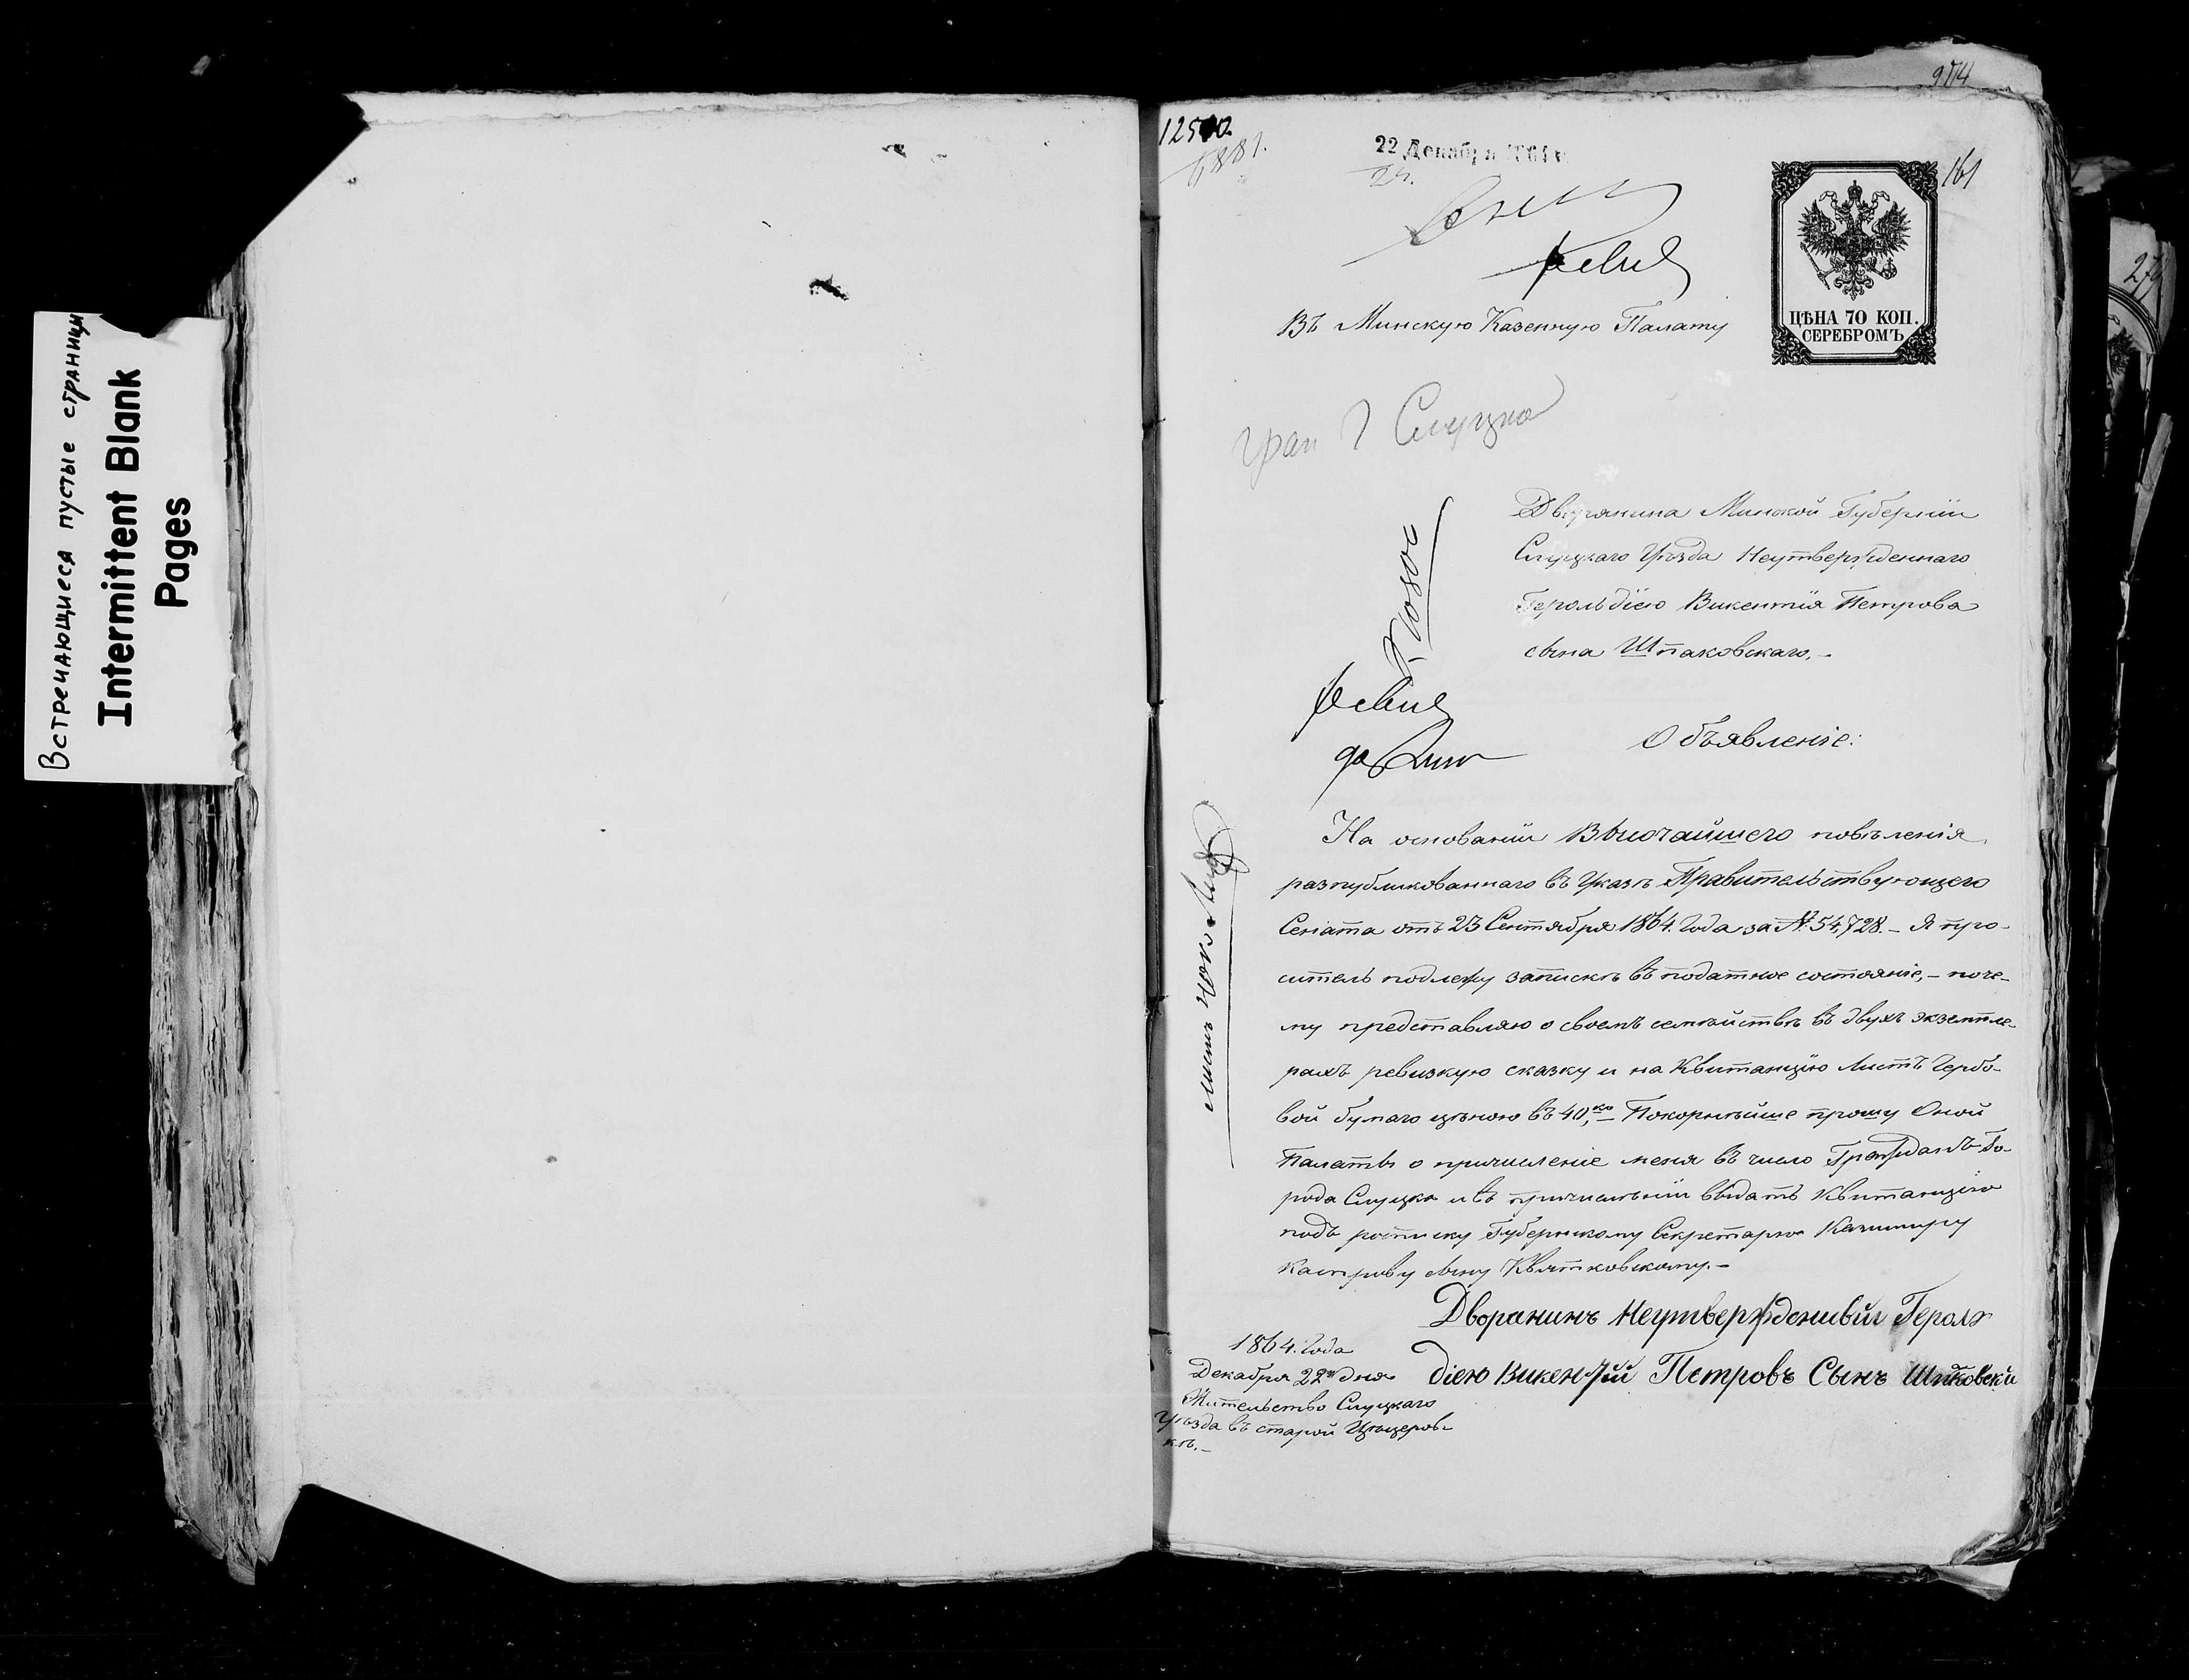 Встречающиеся пустые страницы
Intermittent Blank
Pages
954
161
22 Декабря 1864
24.
ЦѢНА 70 КОП.
СЕРЕБРОМЪ
Въ Минскую Казенную Палату
Гран Г Слуцка
Дворянина Минской Губерніи
Слуцкаго Уѣзда Неутвержденнаго
Герольдіею Викентія Петрова
сына Шпаковскаго.-
Объявленіе:
На основаніи Высочайшего повѣленія
разпубликованнаго въ Указѣ Правительствующего
Сената отъ 23 Сентября 1864. Года за №. 54,728. - Я про-
ситель подлежу запискѣ въ податное состояніе, - поче-
му представляю о своемъ семѣйствѣ въ двухъ экземпле-
рахъ ревизкую сказку и на Квитанцію Листъ Гербо-
вой бумаго цѣною въ 40, ко Покорнѣйше прошу Оной
Палаты о причисленіе меня въ число Гражданъ Го-
рода Слуцка и въ причисленіи выдать Квитанцію
подъ росписку Губернскому Секретарю Казимиру
сыну Квятковскому.-
Дворанинъ Неутвержденный Героль
діею Викентій Петровъ Сынъ Шпаковскй
1864. Года
Декабря 22 дня
Жительство Слуцкаго
Уѣзда въ старой
кѣ.-